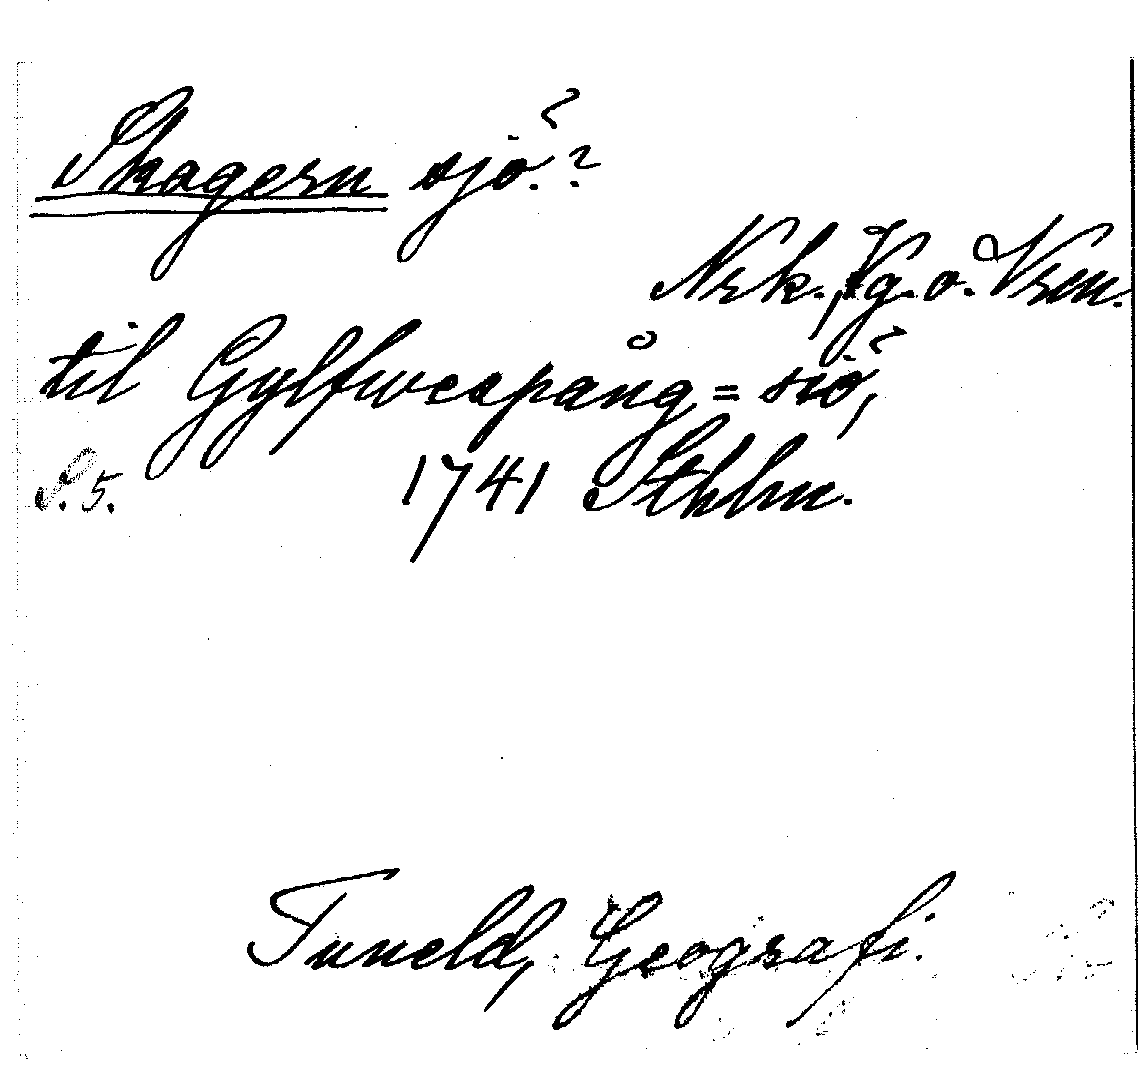 Skagern sjö?
Nrk., Vg. o. Vrm.
til Gylfwespång = siö,
S. 5. 1741 Sthlm.
Tuneld, Geografi.